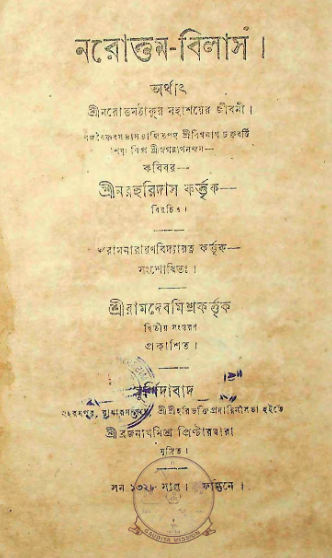 নরোত্তম-বিলাস।
অর্থাৎ
শ্রীনরোত্তমঠাকুর মহাশয়ের জীবনী।
শ্রীবিশ্বনাথ চক্রবর্ত্তি
কবিবর—
শ্রীনরহরিদাস কর্ত্তৃক—
বিরচিত।
রামনারায়ণবিদ্যারত্ন কর্ত্তৃক—
সংশোধিত।
শ্রীরামদেবমিশ্রকর্ত্তৃক
দ্বিতীয় সংস্করণ
প্রকাশিত।
মুর্শিদাবাদ
বহরমপুর, রাধারমণযন্ত্রে, শ্রীশ্রীহরিভক্তিপ্রদায়িনীসভা হইতে
শ্রীব্রজনাথমিশ্র প্রিন্টারদ্বারা
মুদ্রিত।
সন ১৩২৮ সাল। ফাল্গুনে।
GAUDIYA MISSION